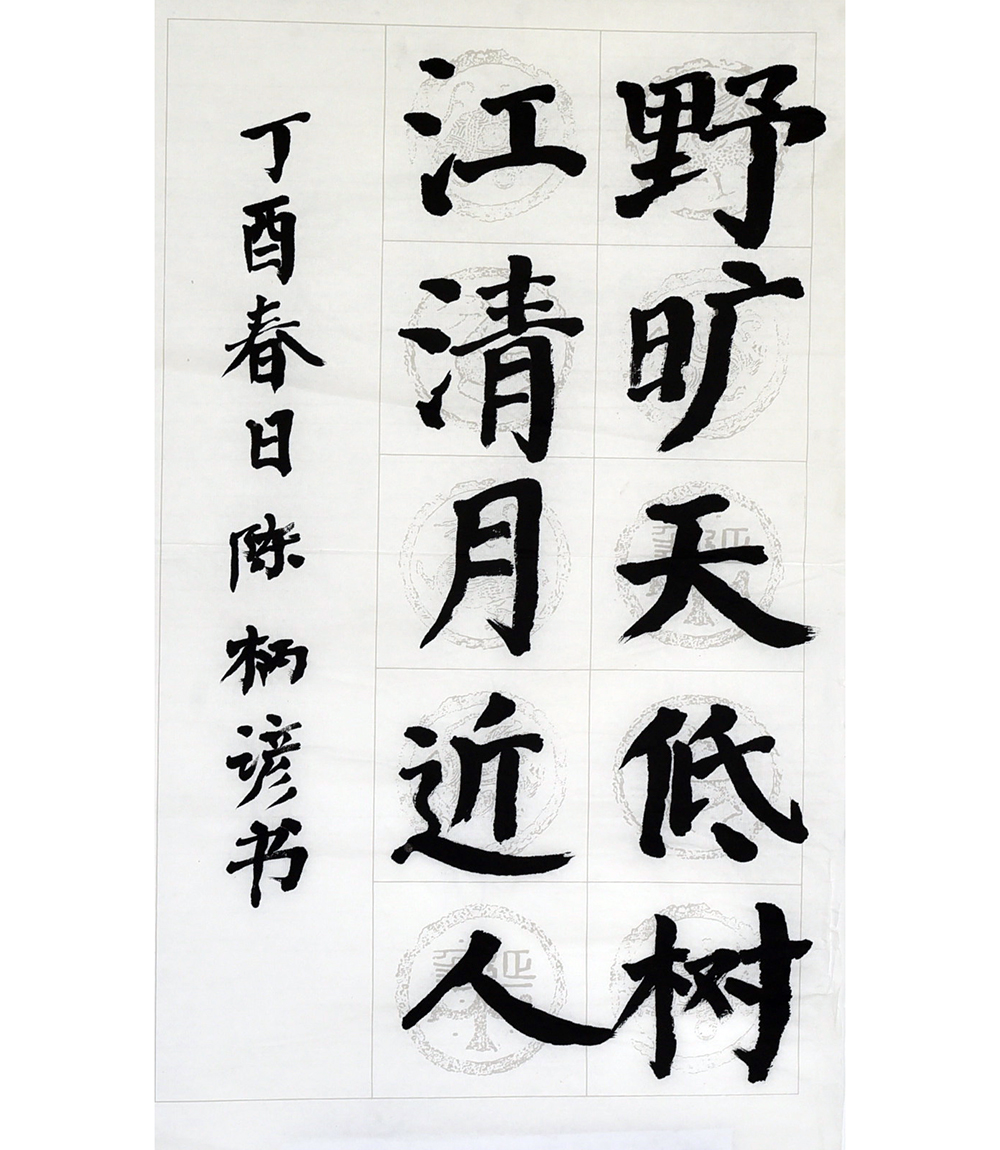 野旷天低树
江清月近人
丁酉春日陈柄谚书